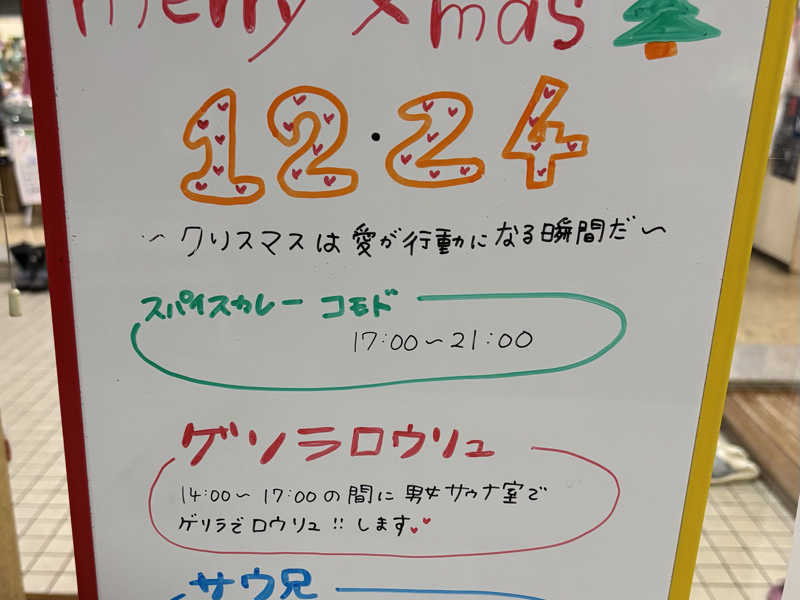 merry Xmas
12・24
～クリスマスは愛が行動になる瞬間だ～
スパイスカレー コモド
17:00～21:00
ゲソラロウリュ
14:00～17:00の間に男女サウナ室で
ゲリラでロウリュ!!します
サウ兄